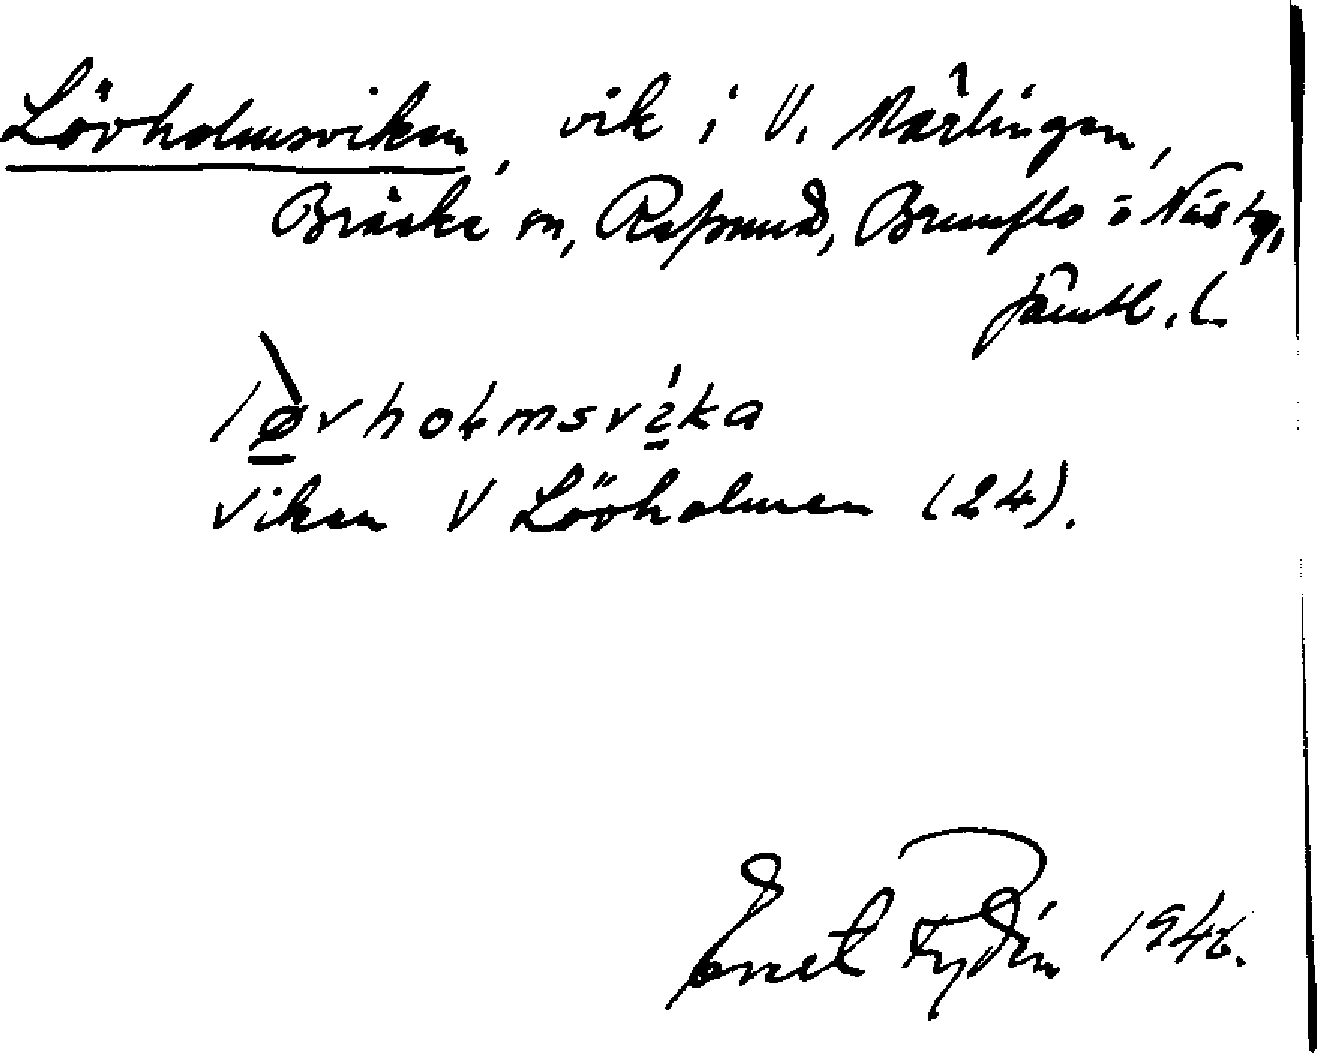 Lövholmsviken, vik i V. Närlingen,
Bräcke sn, Refsund, Brunflo o Näs tg,
Jämtl. l.
løvholmsvika
viken V Lövholmen (24).
1946.